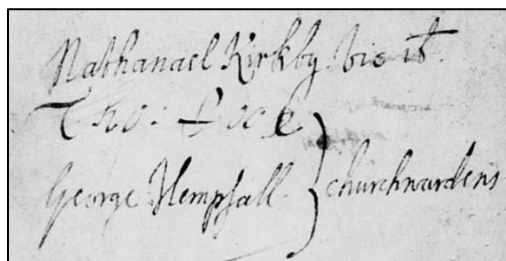 Nathanael Kirkby
Tho:
George Hempsall } churchwardens